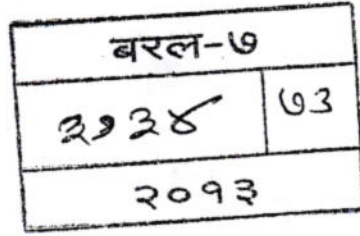 बरल-७
३१३४ ७३
२०१३